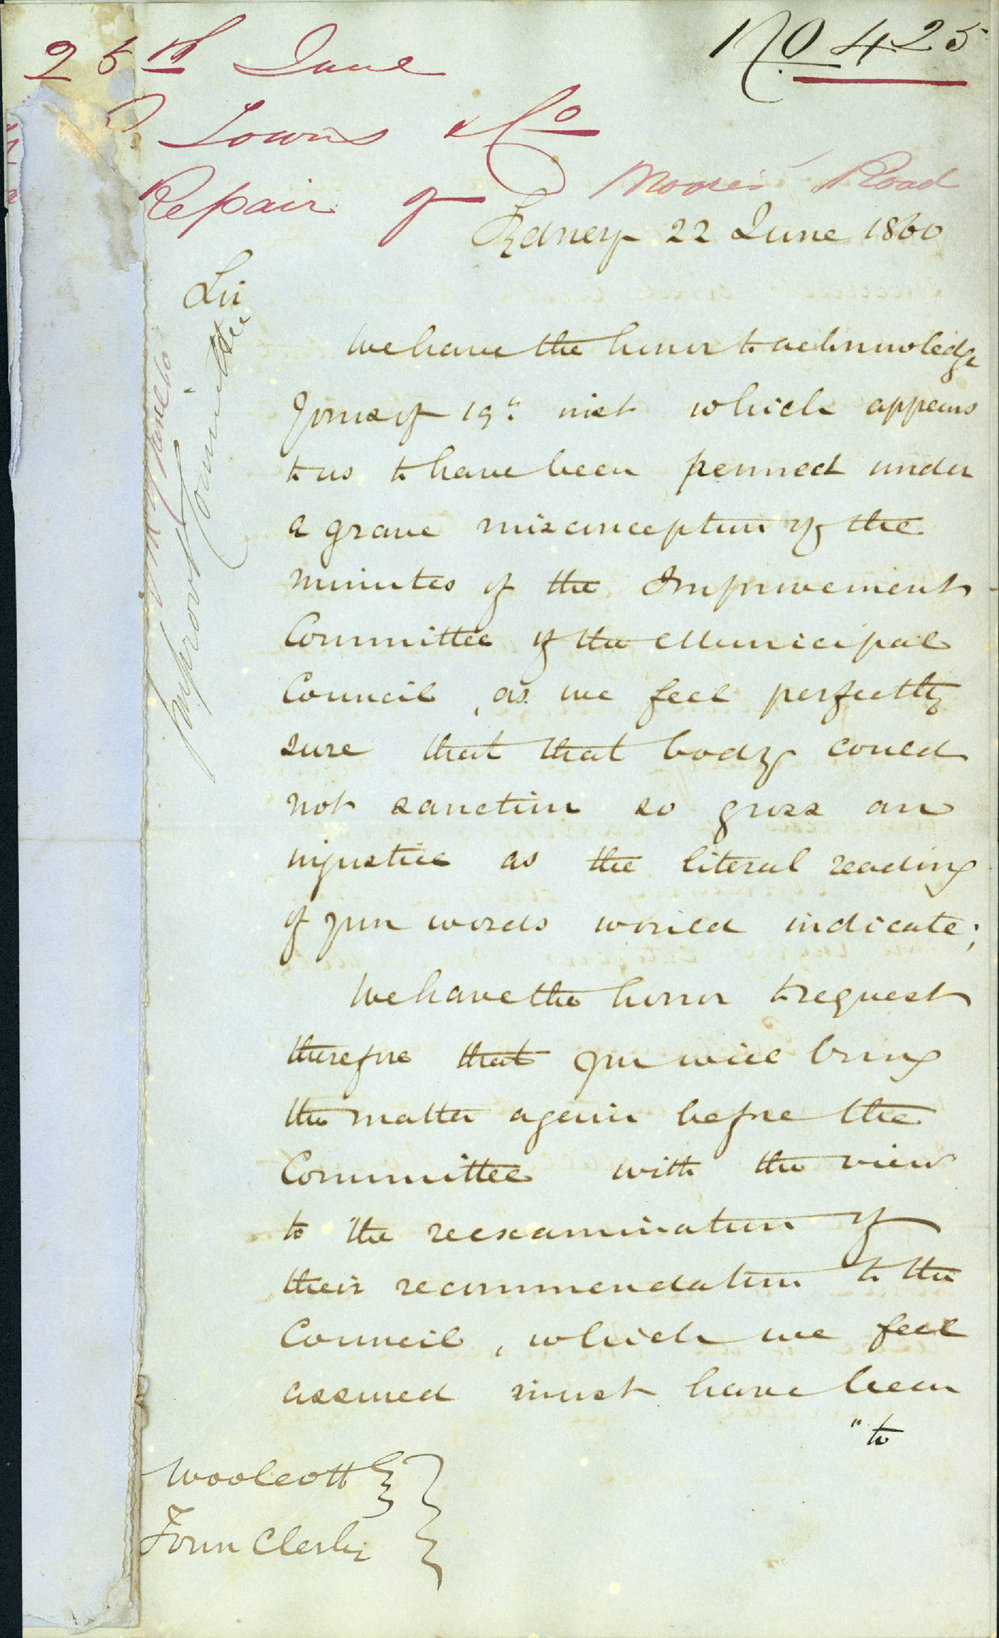 No. 425
25th June
R. Towns & Co
Repair of Moores Road
Sydney 22 June 1860
Sir
We have the honor to acknowledge
yours of 19th inst which appears
to us to have been penned under
a grave misconception of the
minutes of the Improvement
Committee of the Municipal
Council, as we feel perfectly
sure that that body could
not sanction so gross an
injustice as the literal reading
of your words would indicate;
We have the honor to request
therefore that you will bring
the matter again before the
Committee with the view
to the reexamination of
their recommendation to the
Council, which we feel
assured must have been
"to
Woolcott
Town Clerk
Improvt Committee